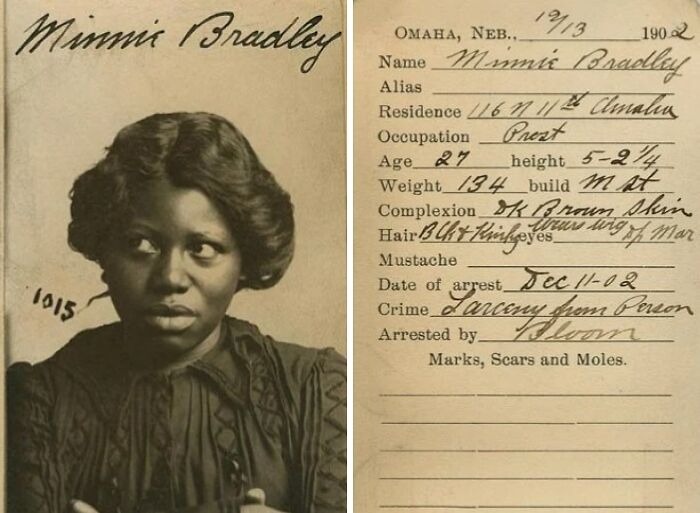 Minnie Bradley
1015
OMAHA, NEB., 12/13 1902
Name Minnie Bradley
Alias
Residence 116 N 11th Omaha
Occupation Prost
Age 27 height 5-2 1/4
Weight 134 build M St
Complexion DK Brown Skin
Hair Blk & Kinky eyes Dk Mar
Wears wig
Mustache
Date of arrest Dec 11-02
Crime Larceny from Person
Arrested by Bloom
Marks, Scars and Moles.